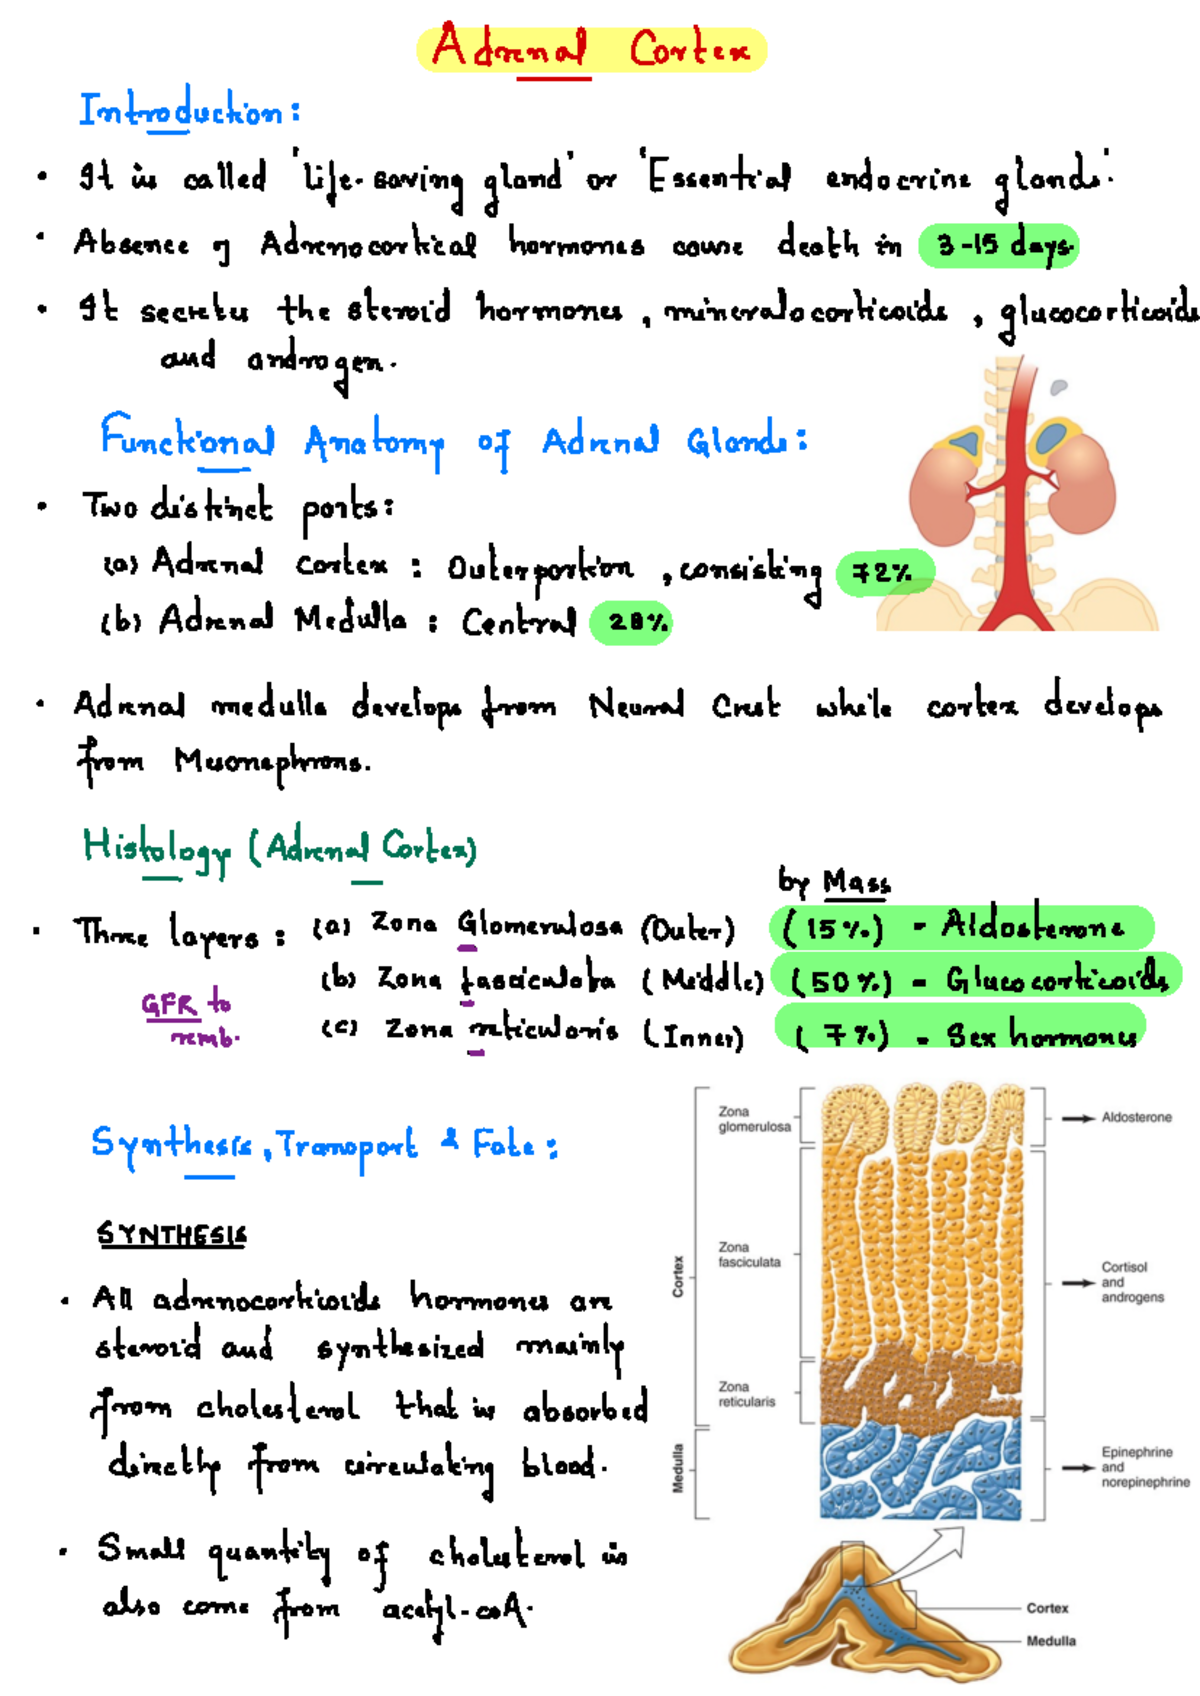 Adrenal Cortex
Introduction:
• It is called 'life-saving gland' or 'Essential endocrine glands'.
• Absence of Adrenocortical hormones cause death in 3-15 days.
• It secretes the steroid hormones, mineralocorticoids, glucocorticoids
and androgen.
Functional Anatomy of Adrenal Glands:
• Two distinct parts:
(a) Adrenal Cortex : Outer portion, consisting 72%
(b) Adrenal Medulla : Central 28%
• Adrenal medulla develops from Neural Crest while cortex develops
from Mesonephrons.
Histology (Adrenal Cortex)
by Mass
• Three layers: (a) Zona Glomerulosa (Outer) (15%) - Aldosterone
(b) Zona fasciculata (Middle) (50%) - Glucocorticoids
GFR to
remb.
(c) Zona reticularis (Inner) (7%) - Sex hormones
Synthesis, Transport & Fate:
SYNTHESIS
• All adrenocorticoids hormones are
steroid and synthesized mainly
from cholesterol that is absorbed
directly from circulating blood.
• Small quantity of cholesterol is
also come from acetyl-coA.
Zona
glomerulosa
Aldosterone
Cortex
Zona
fasciculata
Cortisol
and
androgens
Zona
reticularis
Medulla
Epinephrine
and
norepinephrine
Cortex
Medulla